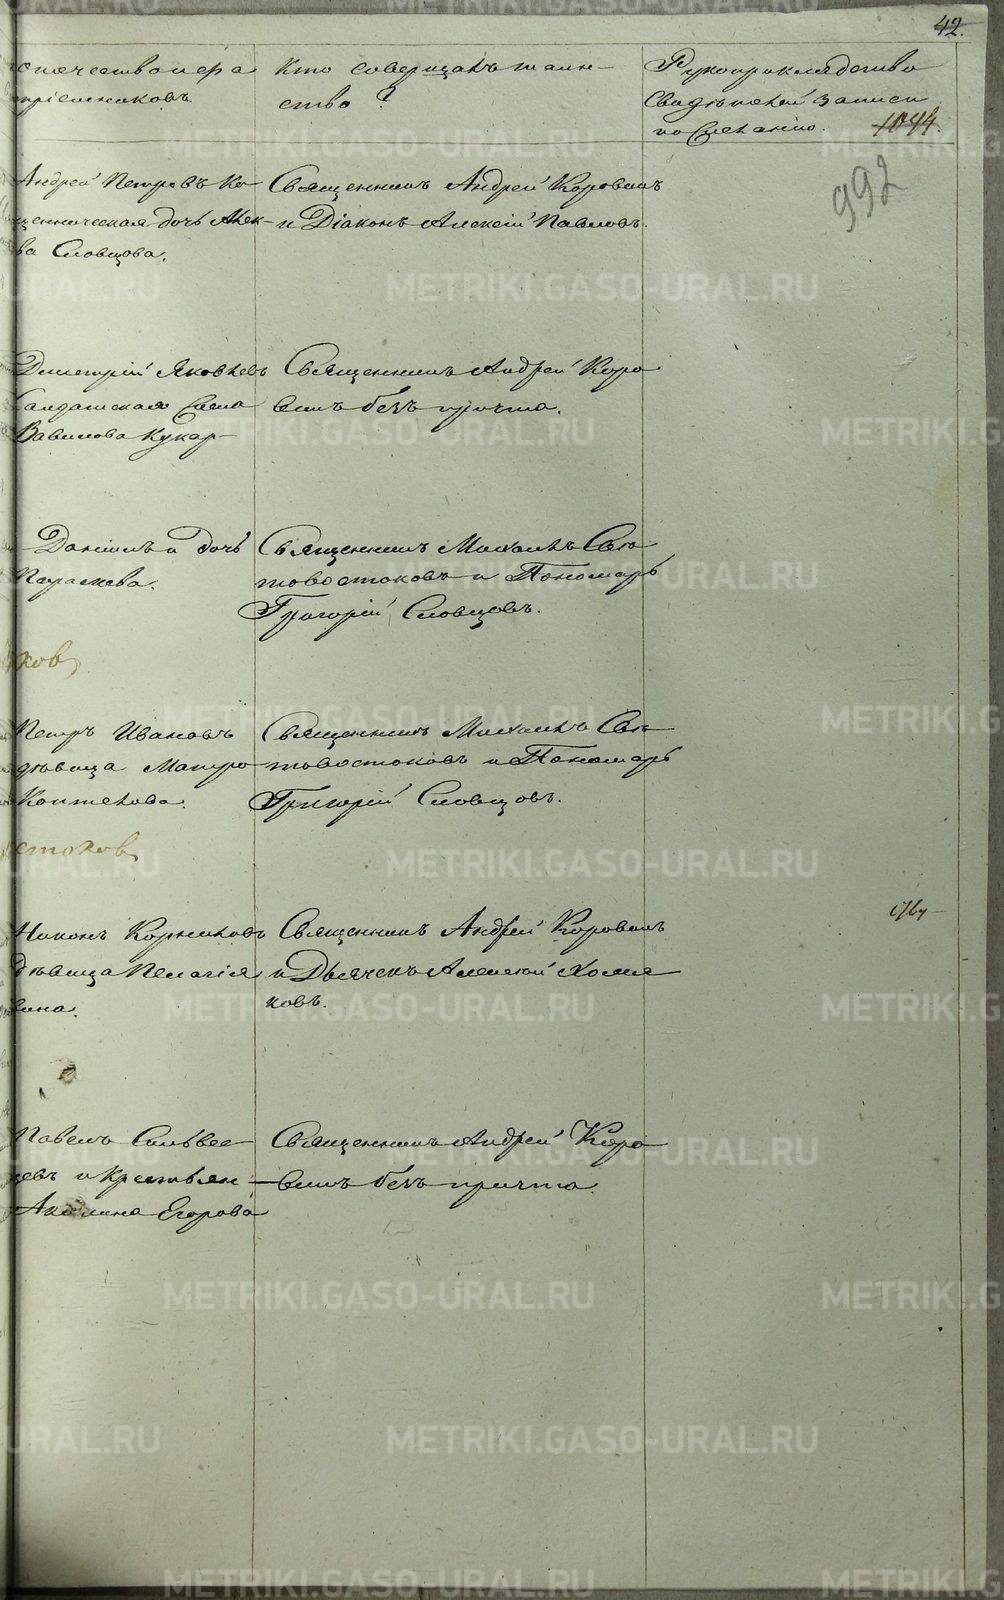 42.
отчество и фа
пріемниковъ.
Кто совершалъ таин-
ство?
Рукоприкладство
Свидѣтелей записи
по желанію. 1044.
992
Андрей Петровъ Ко
щенническая дочь Алек-
ва Словцова.
Священникъ Андрей Коровинъ
и Діаконъ Алексій Павловъ.
Димитрій Яковлевъ
Салдатская
Вавилова Кукар-
Священникъ Андрей Коро
винъ безъ причта.
Даніилъ и дочь
Параскева.
Священникъ Михаилъ Свя
товостоковъ и Пономарь
Григорій Словцовъ.
ков
Петръ Ивановъ
дѣвица Матро
Коптелова.
Священникъ Михаилъ Свя
товостоковъ и Пономарь
Григорій Словцовъ.
стоков
Никонъ Корниловъ
дѣвица Пелагія
вина.
Священникъ Андрей Коровинъ
и Дьячекъ Алексѣй Холмя
ковъ.
Павелъ Сильвес
цевъ и крестьян
Акилина Егорова
Священникъ Андрей Коро
винъ безъ причта.
METRIKI.GASO-URAL.RU